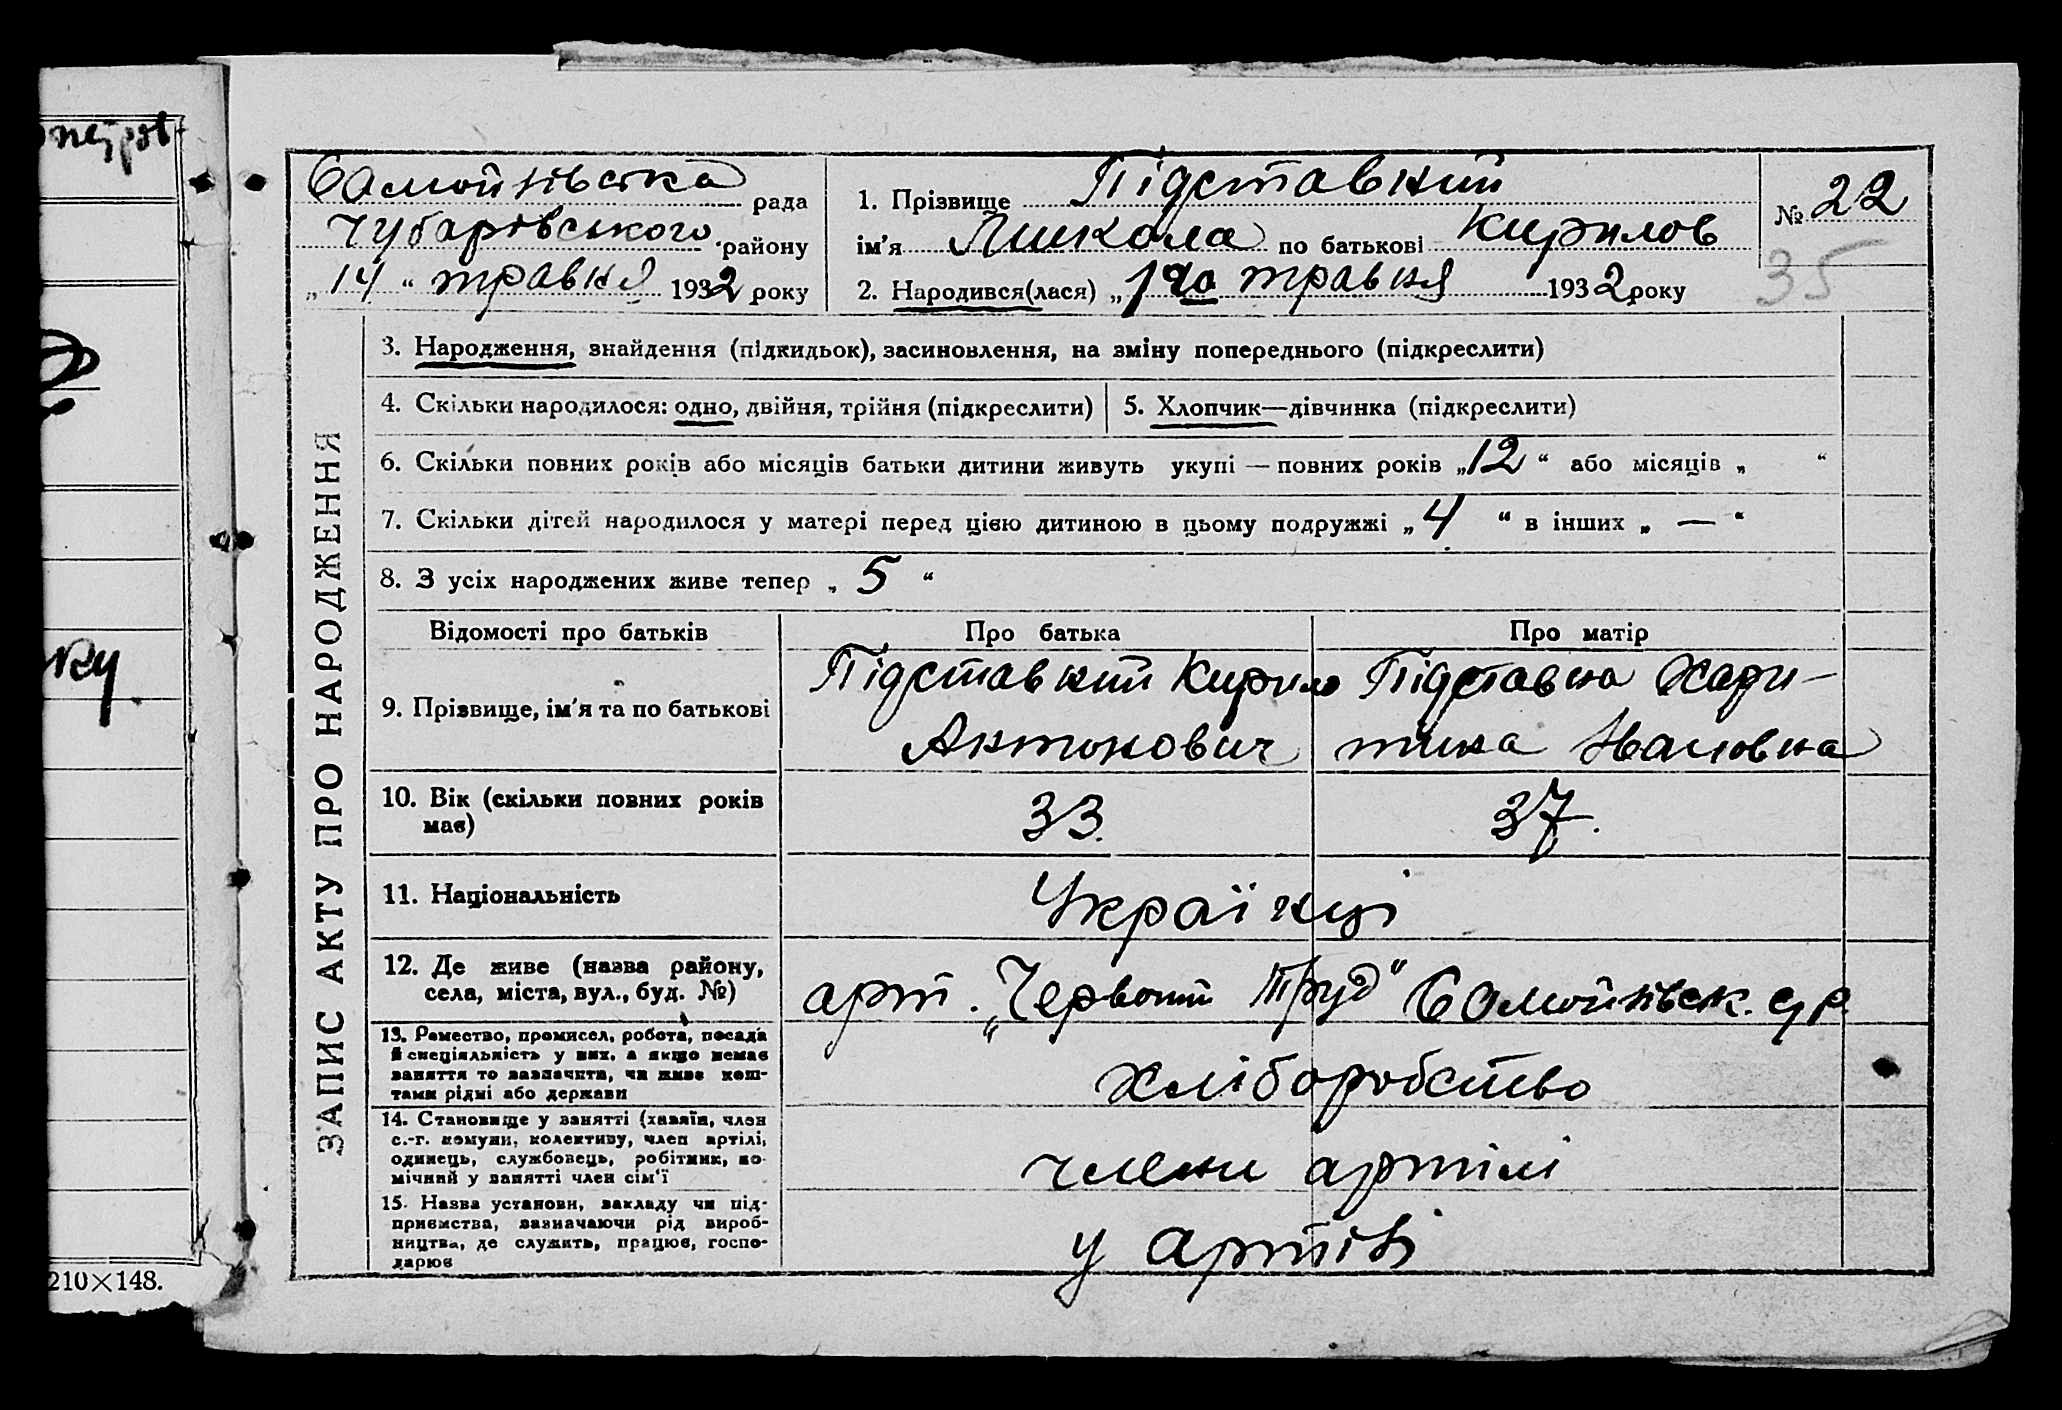 Самойлівська рада
Чубарівського району
„14“ травня 1932 року
1. Прізвище Підставкий
ім’я Микола по батькові Кирилов
2. Народився(лася) „1го травня 1932 року
№ 22
35
ЗАПИС АКТУ ПРО НАРОДЖЕННЯ
3. Народження, знайдення (підкидьок), засиновлення, на зміну попереднього (підкреслити)
4. Скільки народилося: одно, двійня, трійня (підкреслити)
5. Хлопчик—дівчинка (підкреслити)
6. Скільки повних років або місяців батьки дитини живуть укупі — повних років „12“ або місяців „ “
7. Скільки дітей народилося у матері перед цією дитиною в цьому подружжі „4 “ в інших „ — “
8. З усіх народжених живе тепер „ 5 “
Відомості про батьків Про батька Про матір
9. Прізвище, ім’я та по батькові
Підставкий Кирило
Антонович
Підставка Хари-
тина Івановна
10. Вік (скільки повних років
має)
33. 37.
11. Національність Українці
12. Де живе (назва району,
села, міста, вул., буд. №)
арт. „Червоний Труд“ Самойлівськ. с/р.
13. Ремество, промисел, робота, посада
й спеціяльність у них, а якщо немає
заняття то зазначити, чи живе кош-
тами рідні або держави
хліборобство
14. Становище у занятті (хазяїн, член
с.-г. комуни, колективу, член артілі,
одинець, службовець, робітник, по-
мічний у занятті член сім’ї
члени артілі
15. Назва установи, закладу чи під-
приємства, зазначаючи рід вироб-
ництва, де служить, працює, госпо-
дарює
у артілі
210×148.